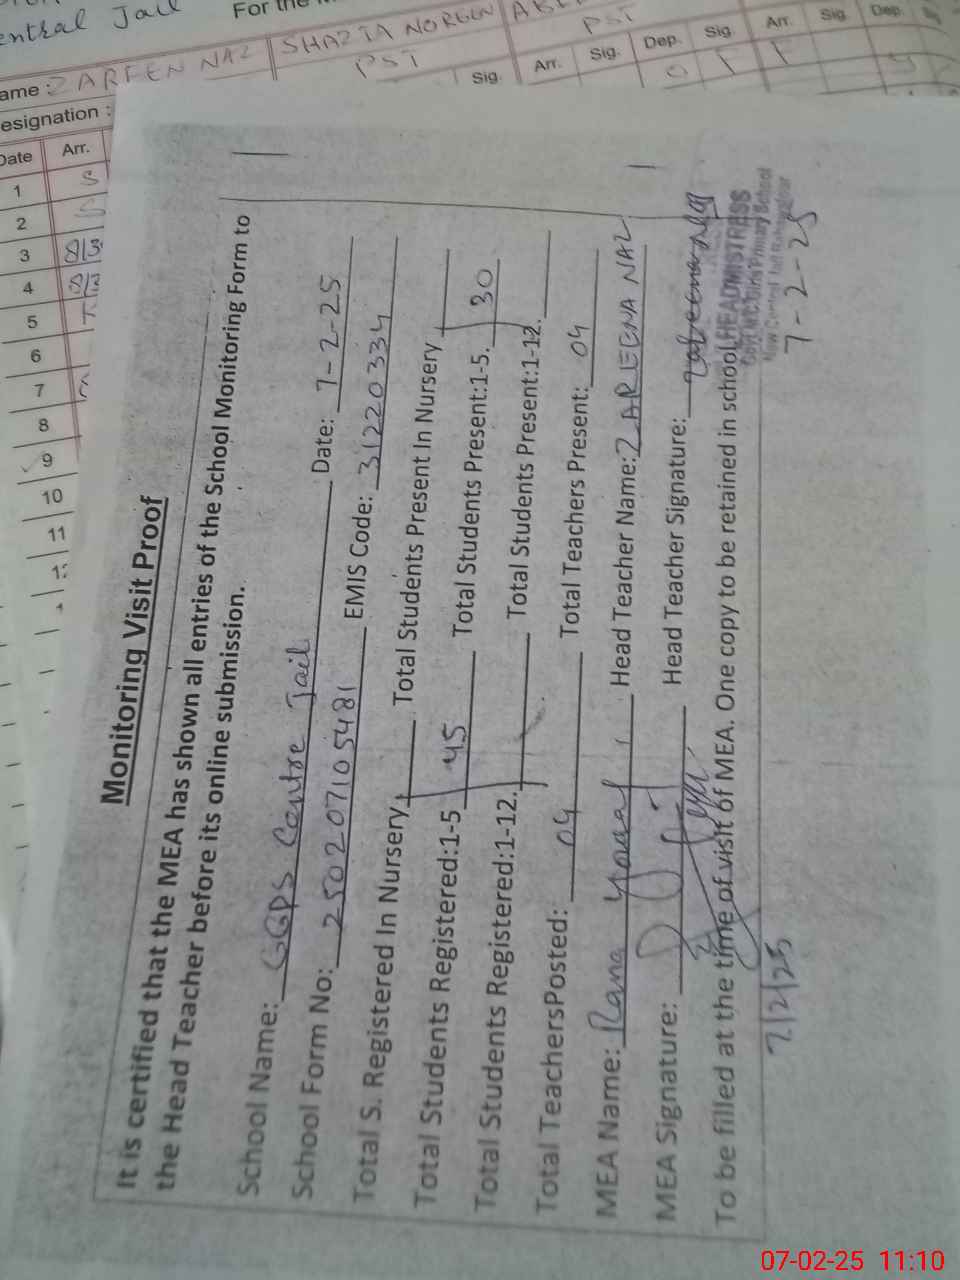 entral Jail
For the
ame : ZAREEN NAZ SHAZIA NOREEN
PST PST
esignation :
Sig. Arr. Sig. Dep. Sig. Arr. Sig. Dep.
Date Arr.
1 S
2
3
4
5
6
7
8
9
10
11
Monitoring Visit Proof
It is certified that the MEA has shown all entries of the School Monitoring Form to
the Head Teacher before its online submission.
School Name: GGPS Centre Jail Date: 7-2-25
School Form No: 250207105481 EMIS Code: 31220334
Total S. Registered In Nursery Total Students Present In Nursery
Total Students Registered:1-5 45 Total Students Present:1-5. 30
Total Students Registered:1-12. Total Students Present:1-12.
Total TeachersPosted: 04 Total Teachers Present: 04
MEA Name: Rana Yousaf Head Teacher Name: ZAREENA NAZ
MEA Signature: Head Teacher Signature:
To be filled at the time of visit of MEA. One copy to be retained in school.
HEADMISTRESS
Primary School
7-2-25
7/2/25
07-02-25 11:10